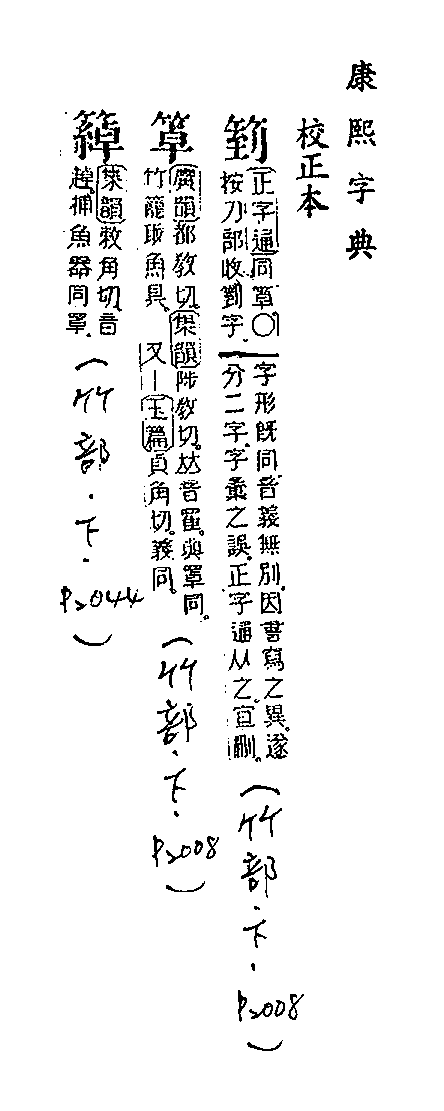 康熙字典
校正本
箌
正字通同䈇○
按刀部收㔁字.
字形既同.音義無別.因書寫之異.遂
分二字.字彙之誤.正字通从之.宜刪.
(竹部.下.P2008)
䈇
廣韻都敎切.集韻陟敎切.𠀤音罩.與罩同.
竹籠取魚具. 又|玉篇貞角切.義同.
(竹部.下.P2008)
集韻敕角切.音
趠.捕魚器.同罩.
(竹部.下.P2044)